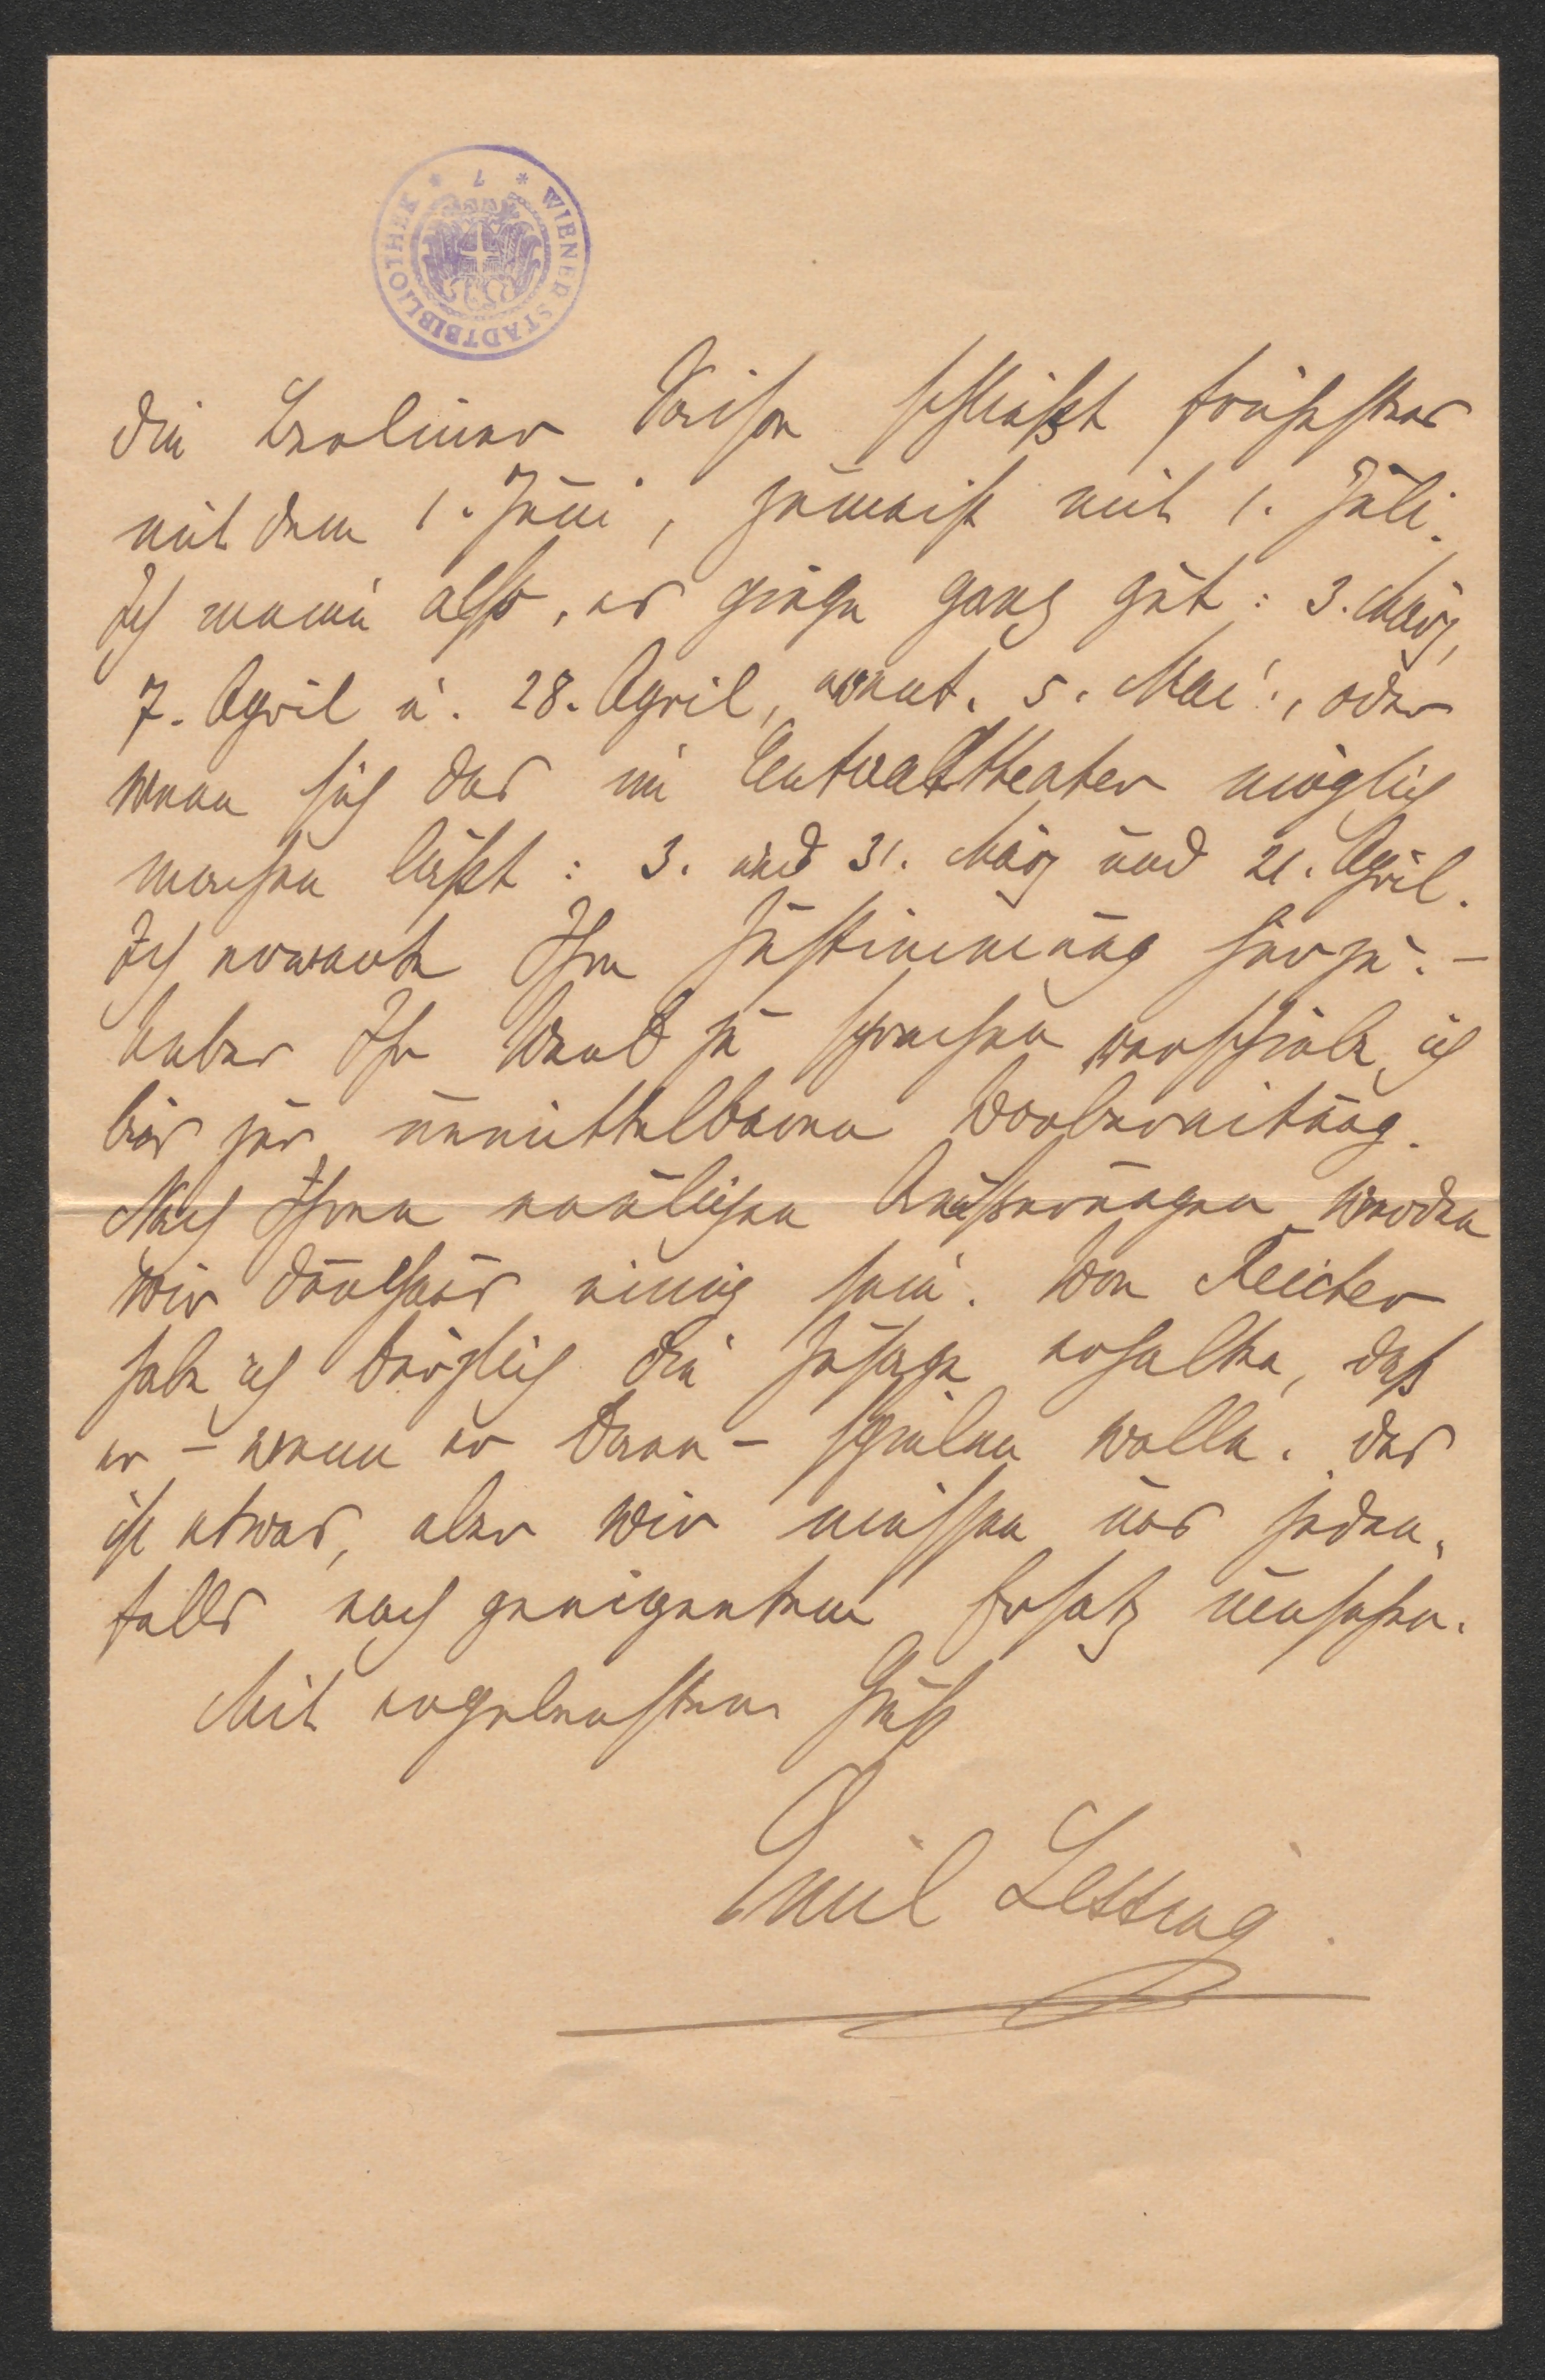 WIENER STADTBIBLIOTHEK * 7 *
Die Berliner Saison schließt frühestens
mit dem 1. Juni, zumeist mit 1. Juli.
Ich meine also, es ginge ganz gut: 3. März,
7. April u. 28. April, event. 5. Mai, oder
wenn sich das im Centraltheater möglich
machen läßt: 3. und 31. März und 21. April.
Ich erwarte Ihre Zustimmung hierzu. –
Ueber Ihr Werk zu sprechen verschiebe ich
bis zur unmittelbaren Vorbereitung.
Nach Ihren neulichen Äußerungen werden
wir durchaus einig sein. Von Reicher
habe ich bezüglich die Zusage erhalten, daß
er – wenn er kann – spielen wolle. Das
ist etwas, aber wir müssen uns jeden-
falls nach geeignetem Ersatz umsehen.
Mit ergebenstem Gruß
Emil Lessing.